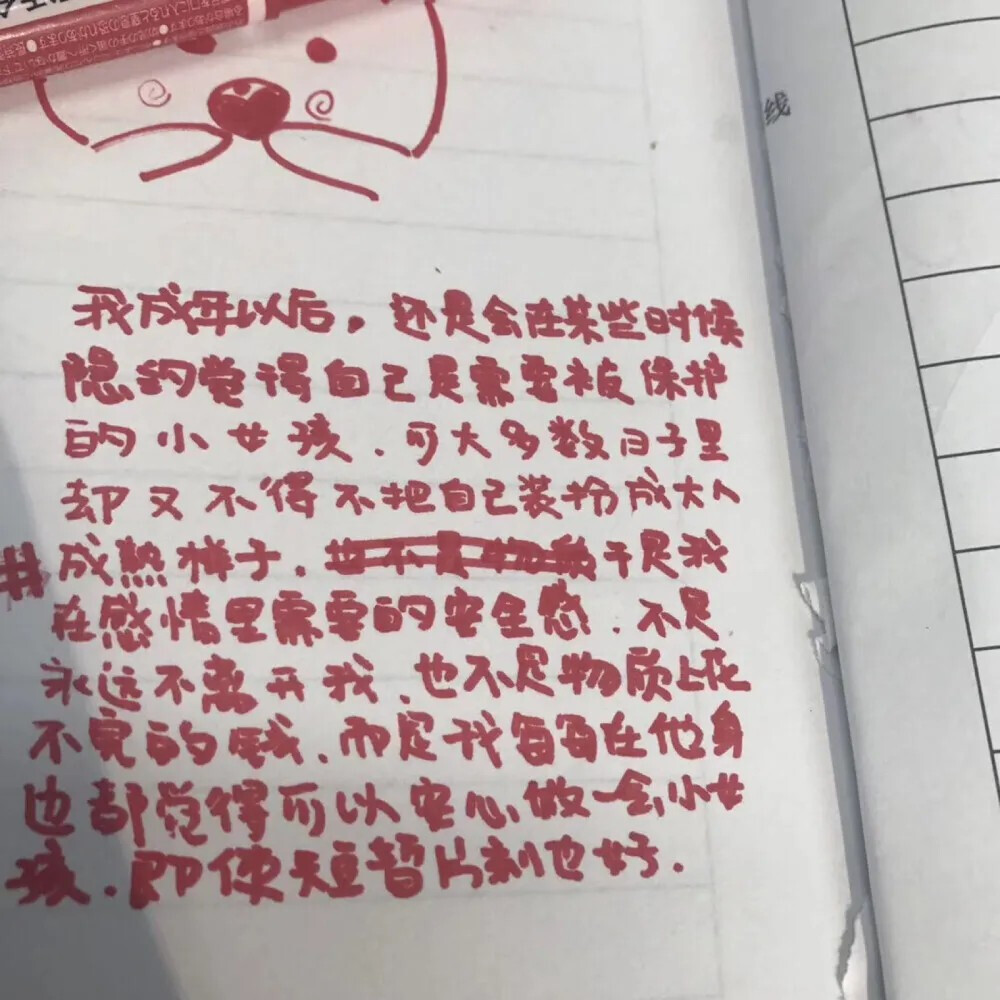 我成年以后，还是会在某些时候
隐约觉得自己是需要被保护
的小女孩.可大多数日子里
却又不得不把自己装扮成大人
成熟样子.于是我
在感情里需要的安全感.不是
永远不离开我.也不是物质上花
不完的钱.而是我每每在他身
边都觉得可以安心做一会小女
孩.即使短暂片刻也好.
线